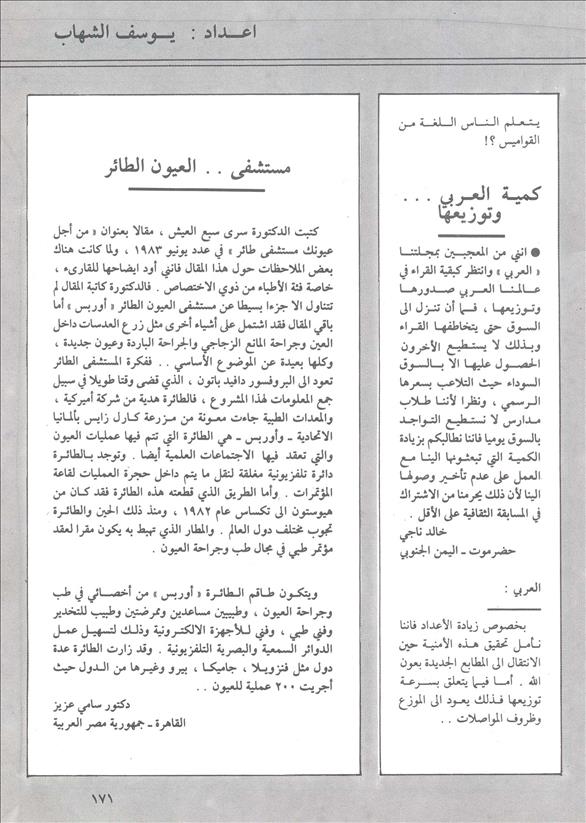 اعـداد : يـوسف الشهاب
يتعلم الناس اللغة من
القواميس ؟!
كمية العربي . . .
وتوزيعها
● انني من المعجبين بمجلتنا
« العربي » وانتظر كبقية القراء في
عالمنا العربي صدورها
وتوزيعها ، فما أن تنزل الى
السوق حتى يتخاطفها القراء
وبذلك لا يستطيع الآخرون
الحصول عليها الا بالسوق
السوداء حيث التلاعب بسعرها
الرسمي ، ونظرا لأننا طلاب
مدارس لا نستطيع التواجد
بالسوق يوميا فاننا نطالبكم بزيادة
الكمية التي تبعثونها الينا مع
العمل على عدم تأخير وصولها
الينا لأن ذلك يحرمنا من الاشتراك
في المسابقة الثقافية على الأقل .
خالد ناجي
حضرموت ـ اليمن الجنوبي
العربي :
بخصوص زيادة الأعداد فاننا
نأمل تحقيق هذه الأمنية حين
الانتقال الى المطابع الجديدة بعون
الله . أما فيما يتعلق بسرعة
توزيعها فذلك يعود الى الموزع
وظروف المواصلات . .
مستشفى . . العيون الطائر
كتبت الدكتورة سرى سبع العيش ، مقالا بعنوان « من أجل
عيونك مستشفى طائر » في عدد يونيو ١٩٨٣ ، ولما كانت هناك
بعض الملاحظات حول هذا المقال فانني أود ايضاحها للقارىء ،
خاصة فئة الأطباء من ذوي الاختصاص . فالدكتورة كاتبة المقال لم
تتناول الا جزءا بسيطا عن مستشفى العيون الطائر « أوربس » أما
باقي المقال فقد اشتمل على أشياء أخرى مثل زرع العدسات داخل
العين وجراحة المائع الزجاجي والجراحة الباردة وعيون جديدة ،
وكلها بعيدة عن الموضوع الأساسي . . ففكرة المستشفى الطائر
تعود الى البروفسور دافيد باتون ، الذي قضى وقتا طويلا في سبيل
جمع المعلومات لهذا المشروع ، فالطائرة هدية من شركة أميركية ،
والمعدات الطبية جاءت معونة من مزرعة كارل زايس بألمانيا
الاتحادية ـ وأوربس ـ هي الطائرة التي تتم فيها عمليات العيون
والتي تعقد فيها الاجتماعات العلمية أيضا . وتوجد بالطائرة
دائرة تلفزيونية مغلقة لنقل ما يتم داخل حجرة العمليات لقاعة
المؤتمرات . وأما الطريق الذي قطعته هذه الطائرة فقد كان من
هيوستون الى تكساس عام ١٩٨٢ ، ومنذ ذلك الحين والطائرة
تجوب مختلف دول العالم . والمطار الذي تهبط به يكون مقرا لعقد
مؤتمر طبي في مجال طب وجراحة العيون .
ويتكون طاقم الطائرة « أوربس » من أخصائي في طب
وجراحة العيون ، وطبيبين مساعدين وممرضتين وطبيب للتخدير
وفني طبي ، وفني للأجهزة الالكترونية وذلك لتسهيل عمل
الدوائر السمعية والبصرية التلفزيونية . وقد زارت الطائرة عدة
دول مثل فنزويلا ، جاميكا ، بيرو وغيرها من الدول حيث
أجريت ٢٠٠ عملية للعيون . .
دكتور سامي عزيز
القاهرة ـ جمهورية مصر العربية
١٧١